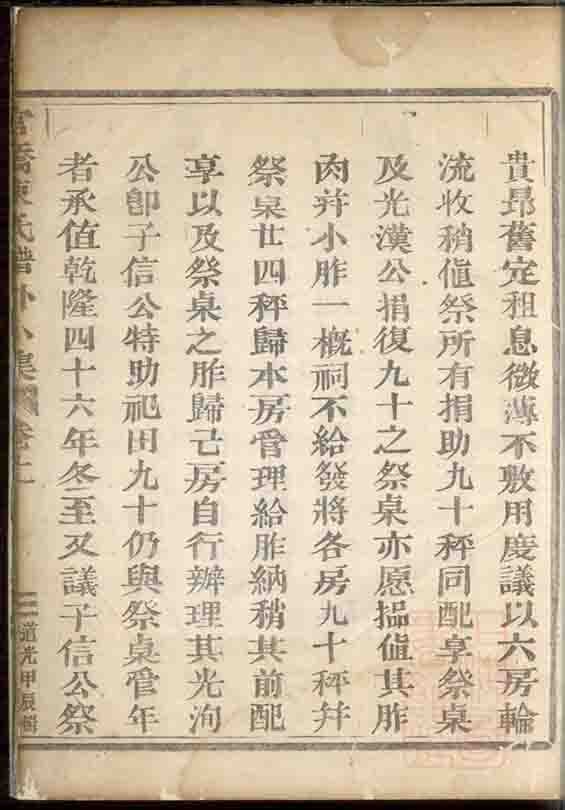 貴昻舊定租息微薄不敷用度議以六房輪
流收稍值祭所有捐助九十秤同配享祭桌
及光漢公捐復九十之祭桌亦愿搵值其胙
肉幷小胙一概祠不給發將各房九十秤幷
祭桌廿四秤歸本房管理給胙納稍其前配
享以及祭桌之胙歸己房自行辦理其光洵
公卽子信公特助祀田九十仍與祭桌管年
者承值乾隆四十六年冬至又議子信公祭
橋陳氏譜外 集
道光甲辰輯